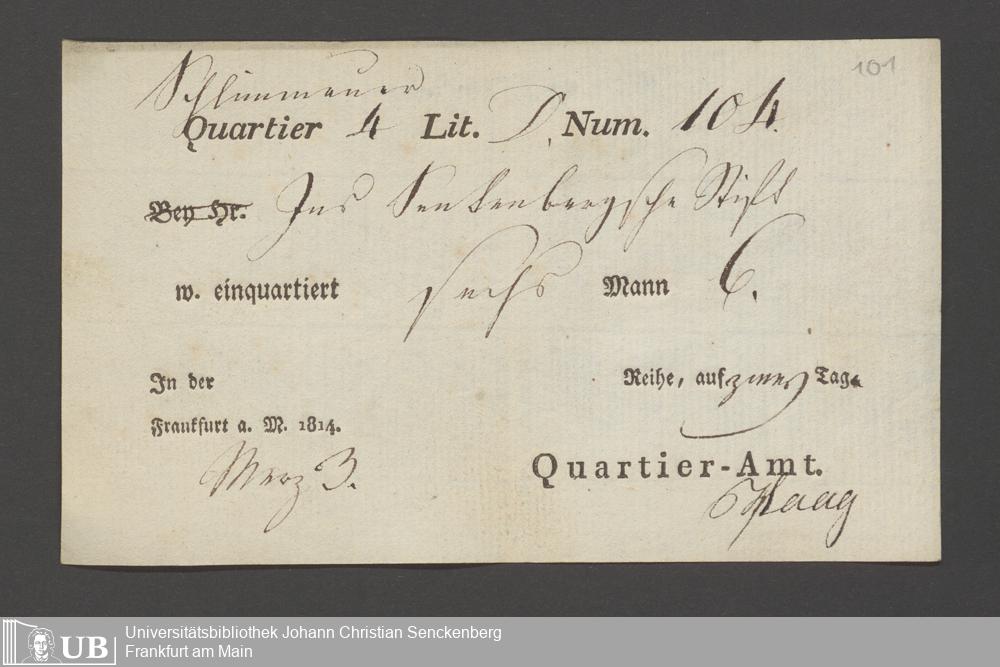 101
Schlimmauer
Quartier 4 Lit. D. Num. 104.
Bey Hr. Ins Senkenbergsche Stift
w. einquartiert sechs Mann 6.
In der Reihe, auf zwey Tage
Frankfurt a. M. 1814.
Merz 3.
Quartier-Amt.
Haag
UB
Universitätsbibliothek Johann Christian Senckenberg
Frankfurt am Main